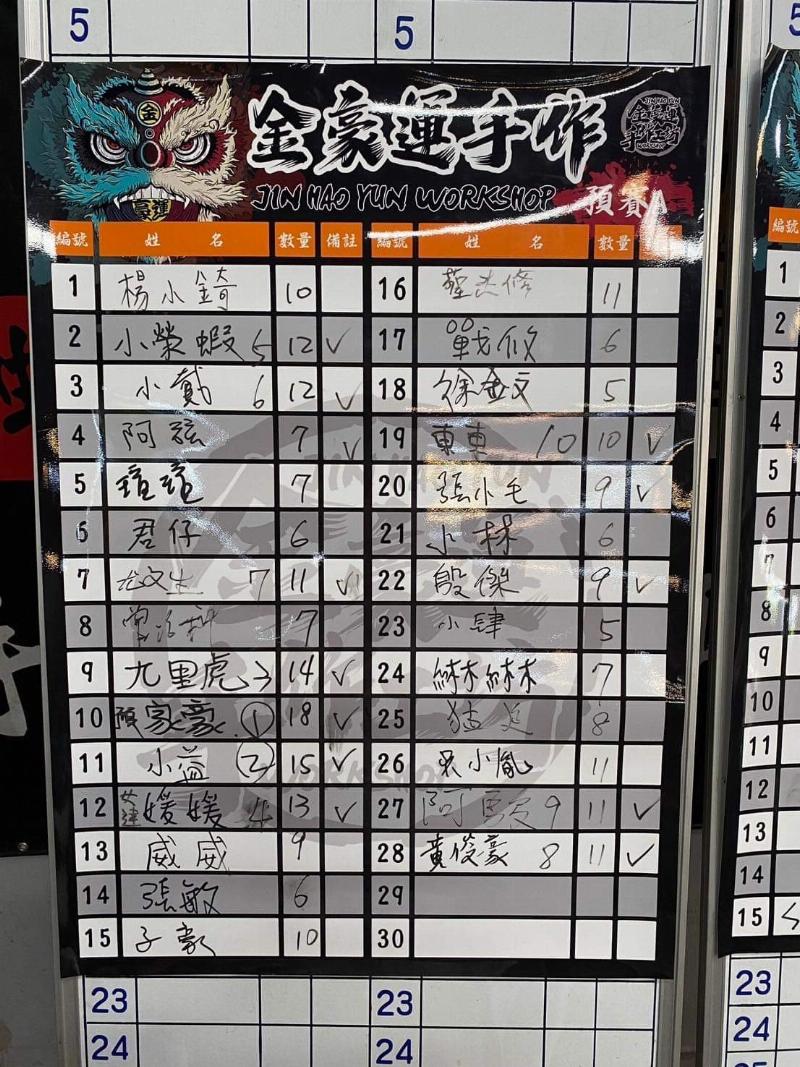 5 5
金豪運手作
JIN HAO YUN WORKSHOP 預賽A
編號 姓 名 數量 備註 編號 姓 名 數量
1 楊小錡 10 16 11
2 小榮蝦 5 12 ✓ 17 6
3 小戴 6 12 ✓ 18 徐金文 5
4 阿弦 7 ✓ 19 東東 10 10 ✓
5 7 20 張小毛 9 ✓
6 君仔 6 21 小林 6
7 尤文生 7 11 ✓ 22 殷傑 9 ✓
8 7 23 小肆 5
9 九里虎 3 14 ✓ 24 綝綝 7
10 家豪 ① 18 ✓ 25 8
11 小益 ② 15 ✓ 26 吳小胤 11
12 媛媛 4 13 ✓ 27 9 11 ✓
13 威威 9 28 黃俊豪 8 11 ✓
14 張敏 6 29
15 子豪 10 30
23 23
24 24
編號
1
2
3
4
5
6
7
8
9
10
11
12
13
14
15
23
24